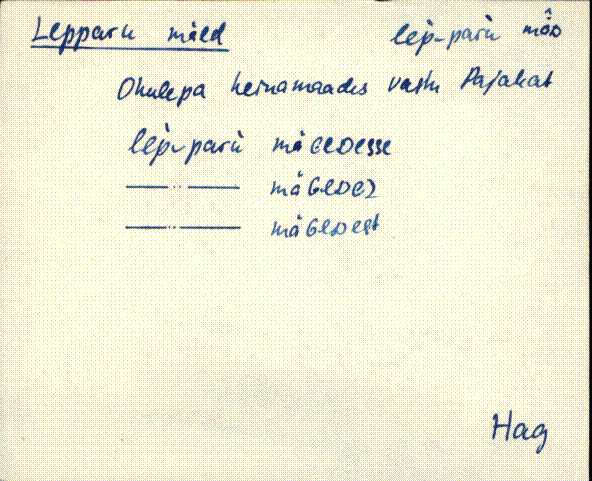 Lepparu mäed lèp-parù mä̂D
Ohulepa heinamaades vastu Pajakat
lèp-parù mäGeDesse
—··— mäGeDeZ
—··— mäGeDest
Hag